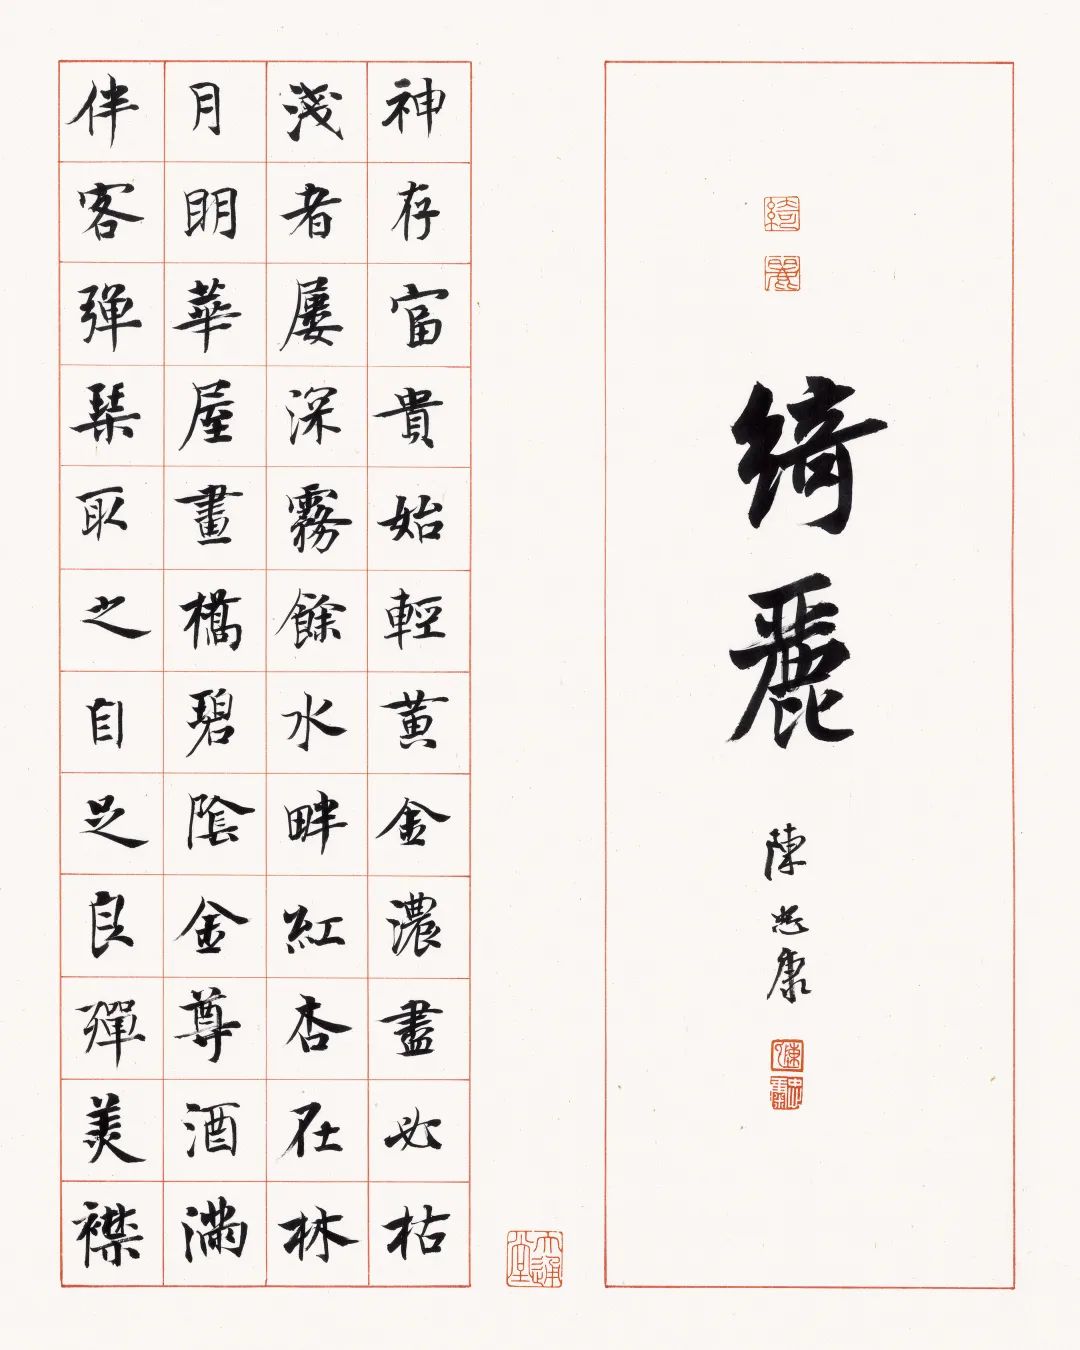 綺
麗
綺麗
陳忠康
神存富貴始輕黃金濃盡必枯
淺者屢深霧餘水畔紅杏在林
月明華屋畫橋碧陰金尊酒滿
伴客彈琴取之自足良殫美襟